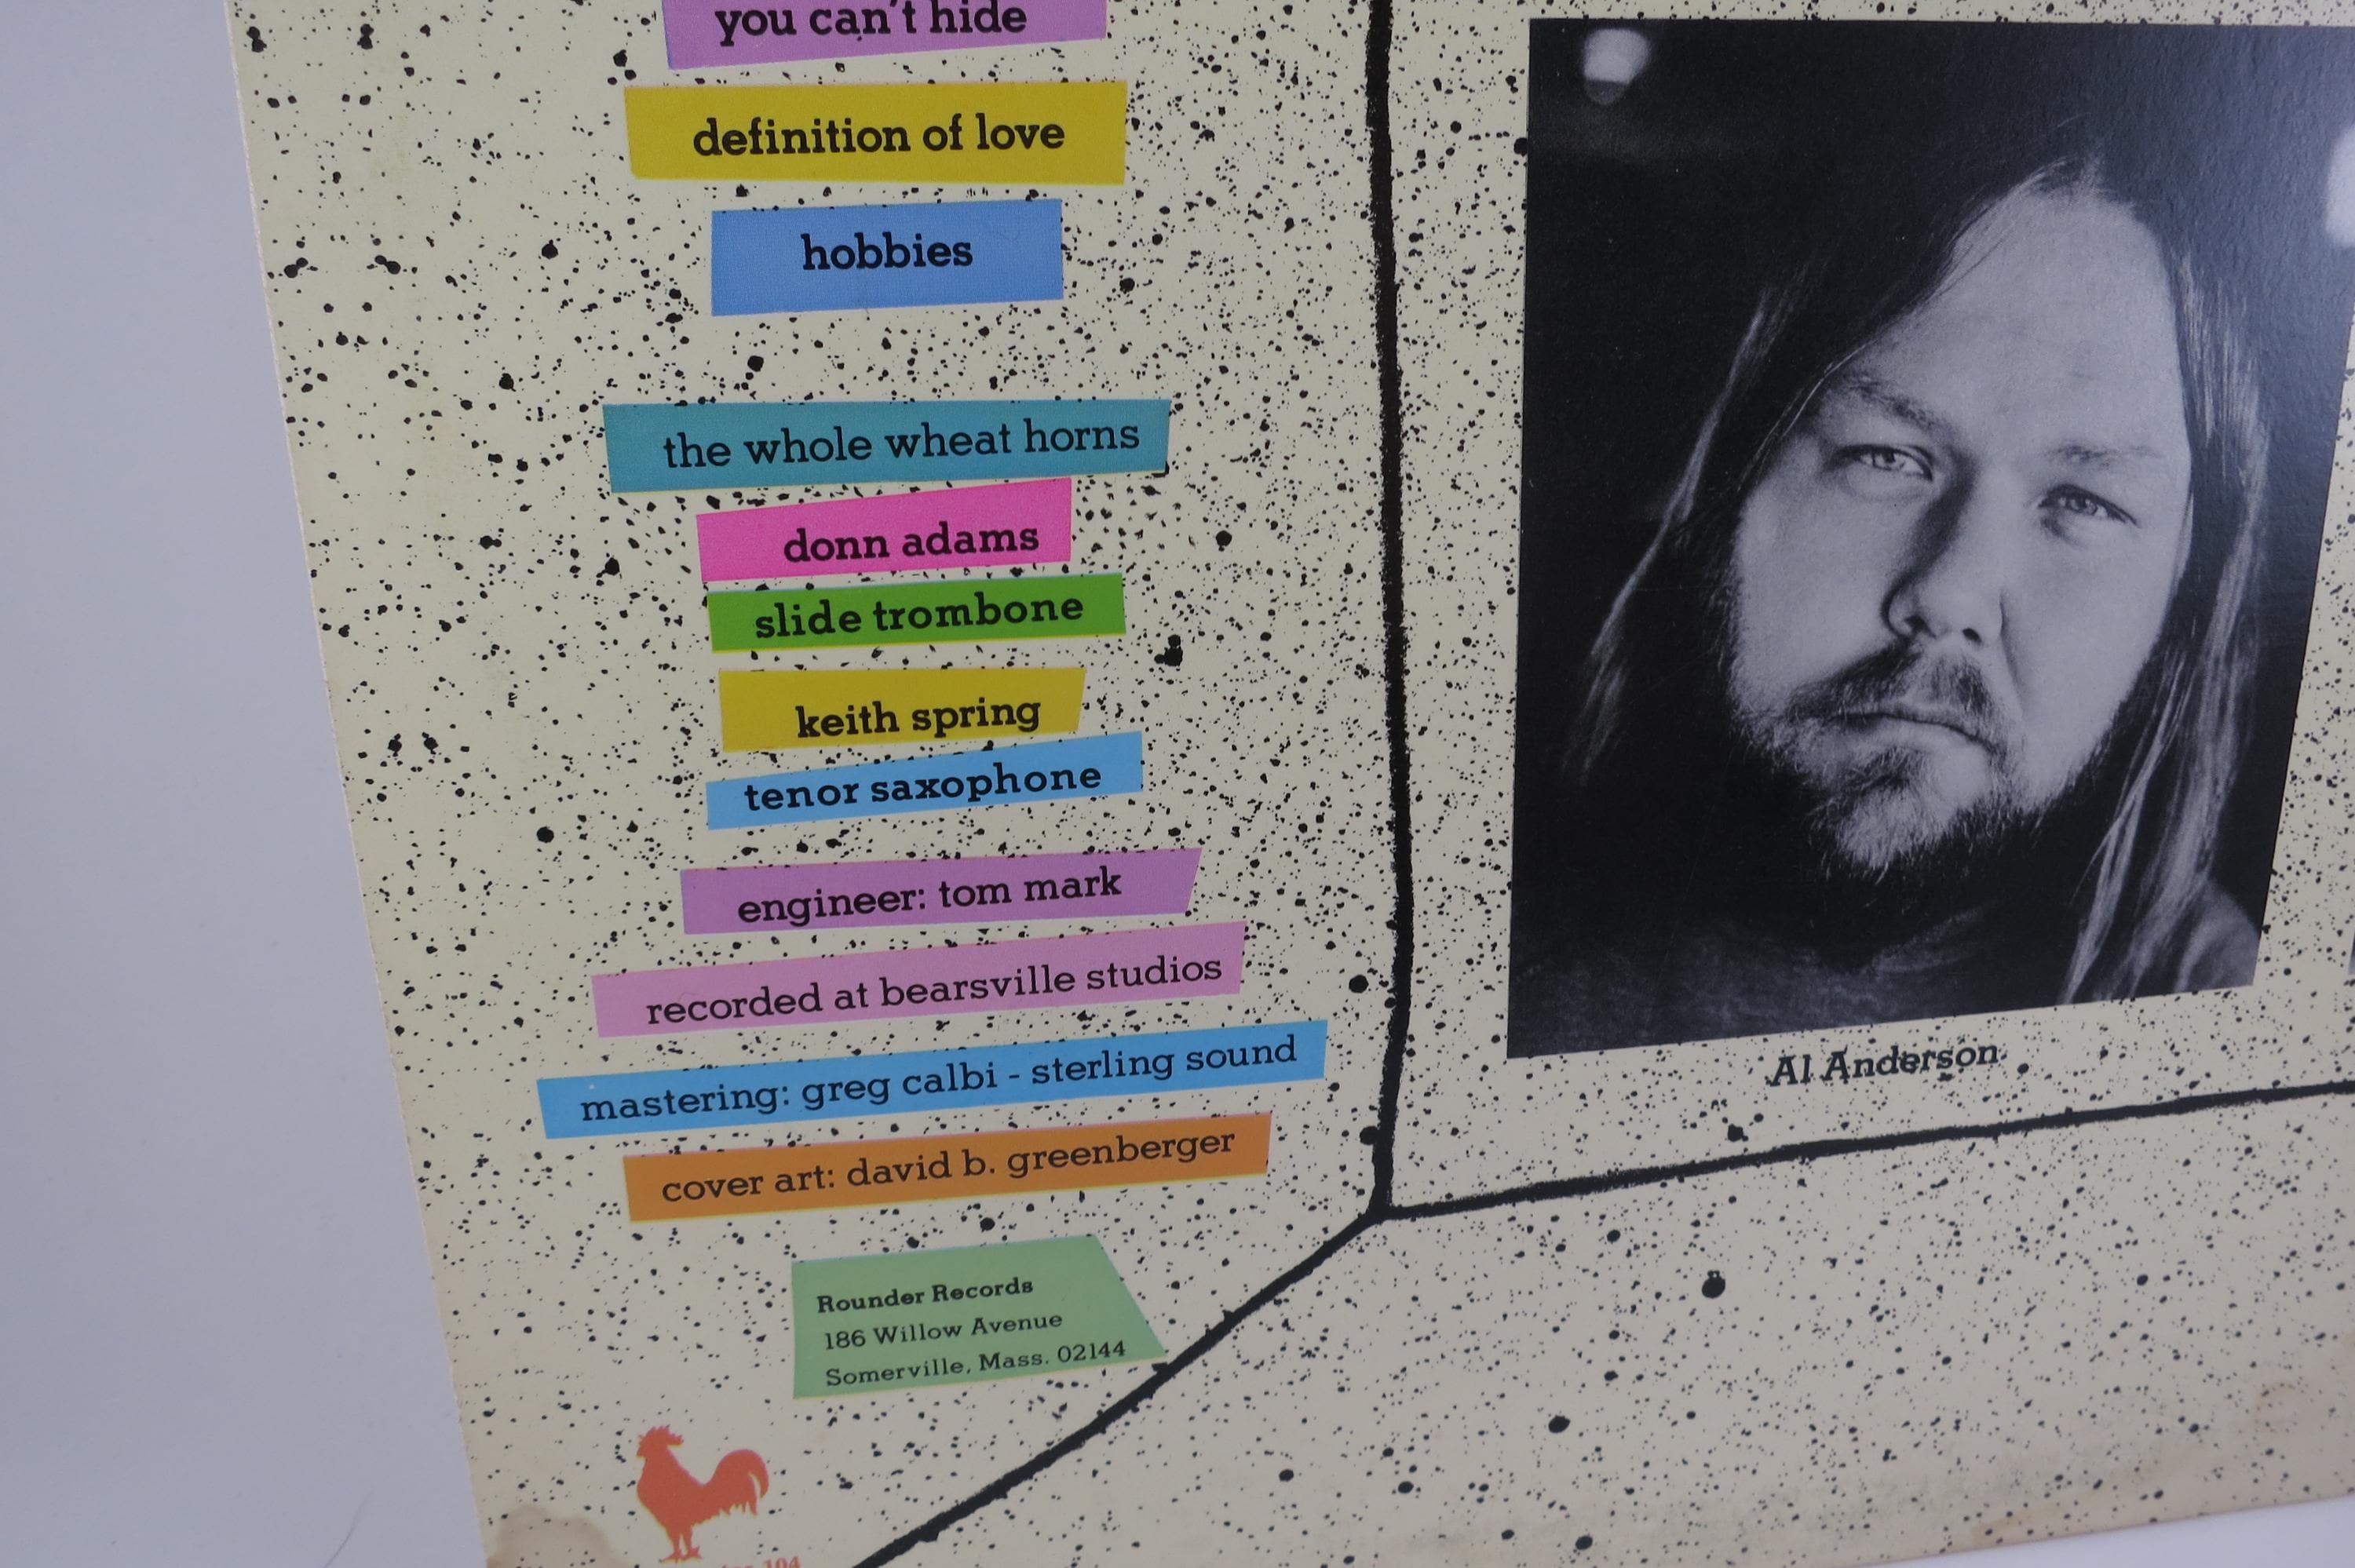 you can't hide
definition of love
hobbies
the whole wheat horns
donn adams
slide trombone
keith spring
tenor saxophone
engineer: tom mark
recorded at bearsville studios
mastering: greg calbi - sterling sound
cover art: david b. greenberger
Rounder Records
186 Willow Avenue
Somerville, Mass. 02144
104
Al Anderson